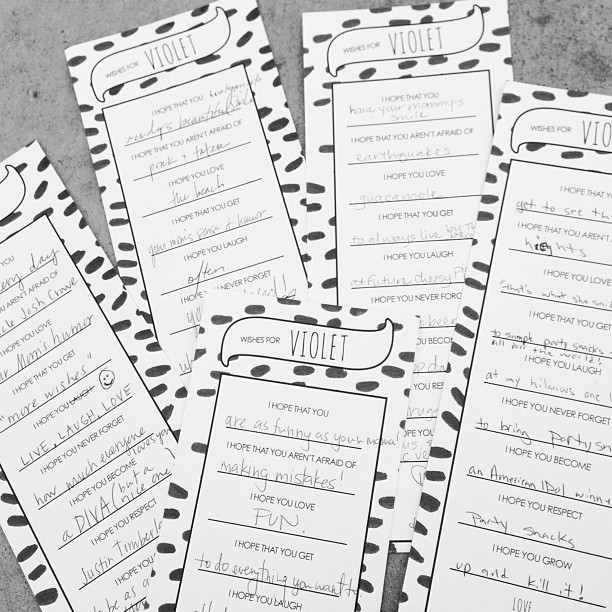 WISHES FOR VIOLET
I HOPE THAT YOU
beautiful
I HOPE THAT YOU AREN'T AFRAID OF
I HOPE YOU LOVE
the beach
I HOPE THAT YOU GET
your mom's sense of humor
I HOPE YOU LAUGH
often
I HOPE YOU NEVER FORGET
WISHES FOR VIOLET
I HOPE THAT YOU
have your mommy's
smile
I HOPE THAT YOU AREN'T AFRAID OF
earthquakes
I HOPE YOU LOVE
guacamole
I HOPE THAT YOU GET
to always live by
I HOPE YOU LAUGH
at future cheesy
I HOPE YOU NEVER FORGET
WISHES FOR VIO
I HOPE THA
get to see th
I HOPE THAT YOU AREN'T
heights
I HOPE YOU LOVE
"that's what she s
I HOPE THAT YOU G
to sample party snacks
all over the world!
I HOPE YOU LAUGH
at my hilarious one l
I HOPE YOU NEVER FORGET
to bring party sn
I HOPE YOU BECOME
an American Idol winn
I HOPE YOU RESPECT
Party snacks
I HOPE YOU GROW
up and kill it!
LOVE
YOU
ery day
OU AREN'T AFRAID OF
cle Josh
E YOU LOVE
ur Mom's humor
E THAT YOU GET
"more wishes"
I HOPE YOU LAUGH
LIVE, LAUGH, LOVE
I HOPE YOU NEVER FORGET
how much everyone
loves you
I HOPE YOU BECOME
a DIVA (but a
nice one)
I HOPE YOU RESPECT
Justin Timberl
to be as a
WISHES FOR VIOLET
I HOPE THAT YOU
are as funny as your mama
I HOPE THAT YOU AREN'T AFRAID OF
making mistakes!
I HOPE YOU LOVE
FUN.
I HOPE THAT YOU GET
to do everything you want to
I HOPE YOU LAUGH